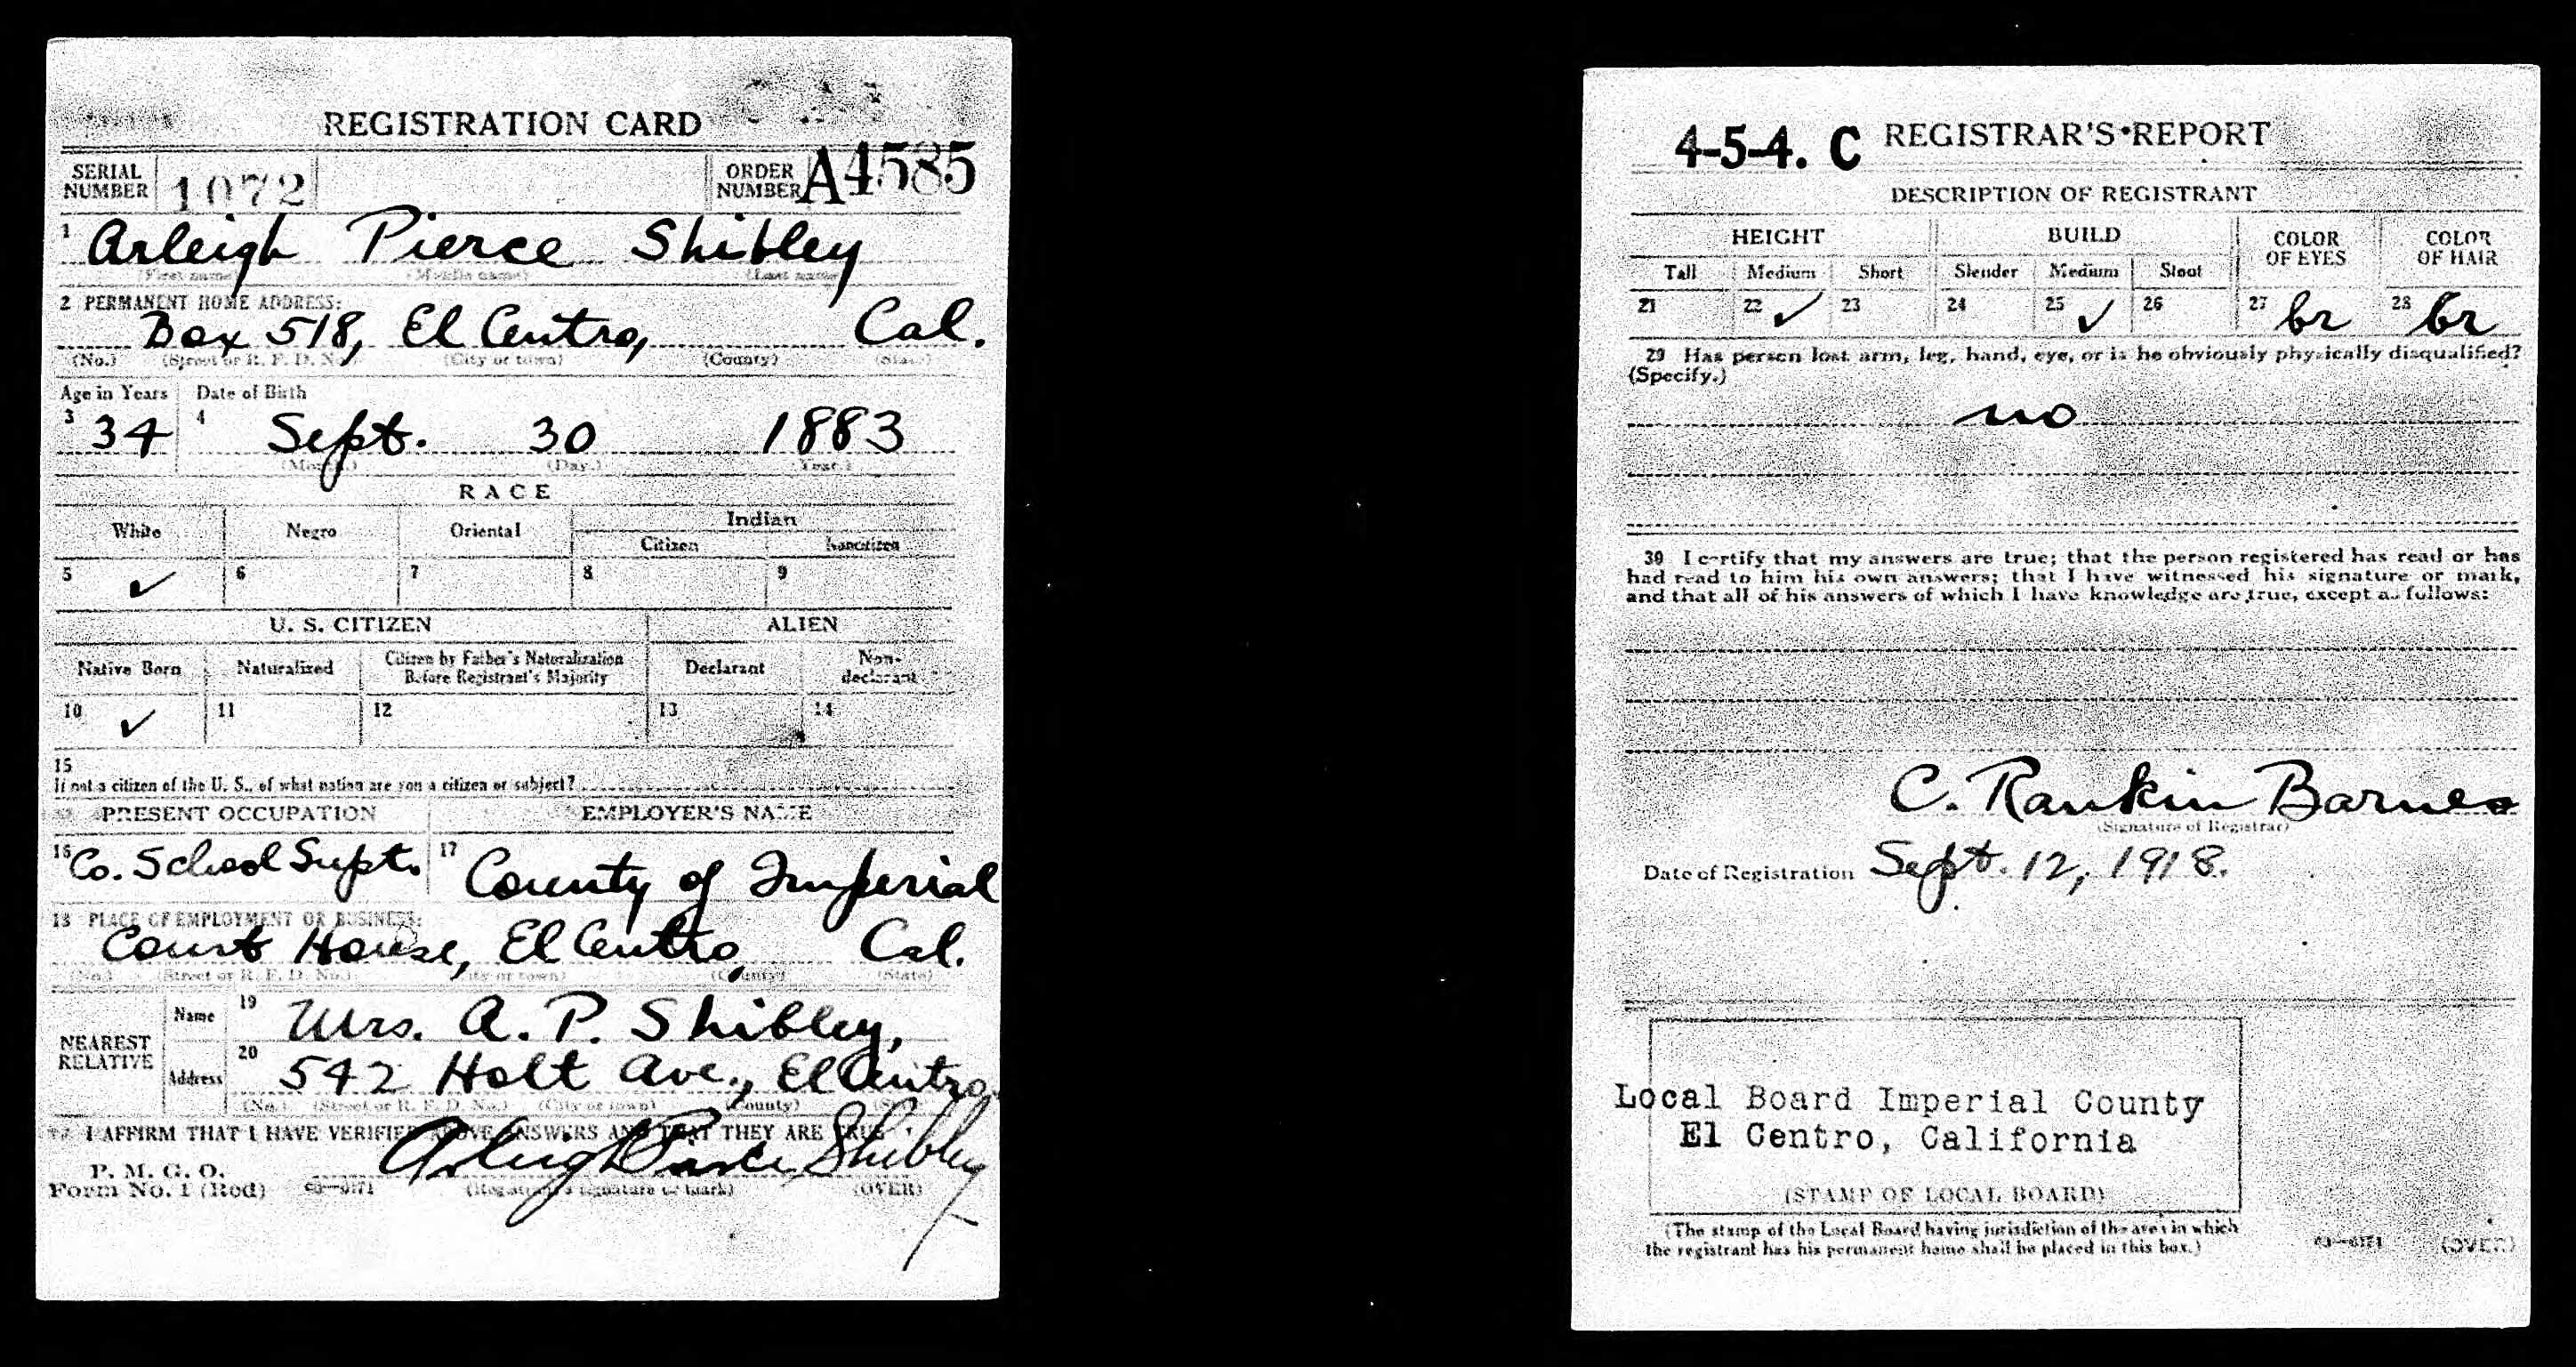 REGISTRATION CARD
SERIAL NUMBER 1072 ORDER NUMBER A4585
1 Arleigh Pierce Shibley
(First name) (Middle name) (Last name)
2 PERMANENT HOME ADDRESS:
Box 518, El Centro, Cal.
(No.) (Street or R. F. D. No.) (City or town) (County) (State)
Age in Years Date of Birth
3 34 4 Sept. 30 1883
(Month.) (Day.) (Year.)
RACE
White Negro Oriental Indian
Citizen Noncitizen
5 ✓ 6 7 8 9
U. S. CITIZEN ALIEN
Native Born Naturalized Citizen by Father's Naturalization Before Registrant's Majority Declarant Non-declarant
10 ✓ 11 12 13 14
15
If not a citizen of the U. S., of what nation are you a citizen or subject?
PRESENT OCCUPATION EMPLOYER'S NAME
16 Co. School Supt. 17 County of Imperial
18 PLACE OF EMPLOYMENT OR BUSINESS:
Court House, El Centro, Cal.
(No.) (Street or R. F. D. No.) (City or town) (County) (State)
NEAREST RELATIVE
Name 19 Mrs. A. P. Shibley,
Address 20 542 Holt Ave., El Centro
(No.) (Street or R. F. D. No.) (City or town) (County)
I AFFIRM THAT I HAVE VERIFIED ABOVE ANSWERS AND THAT THEY ARE TRUE
P. M. G. O.
Form No. 1 (Red) 03—6171 Arleigh Pierce Shibley
(Registrant's signature or mark) (OVER)
4-5-4. C REGISTRAR'S REPORT
DESCRIPTION OF REGISTRANT
HEIGHT BUILD COLOR OF EYES COLOR OF HAIR
Tall Medium Short Slender Medium Stout
21 22 ✓ 23 24 25 ✓ 26 27 br 28 br
29 Has person lost arm, leg, hand, eye, or is he obviously physically disqualified?
(Specify.)
no
30 I certify that my answers are true; that the person registered has read or has
had read to him his own answers; that I have witnessed his signature or mark,
and that all of his answers of which I have knowledge are true, except as follows:
C. Rankin Barnes
(Signature of Registrar)
Date of Registration Sept. 12, 1918.
Local Board Imperial County
El Centro, California
(STAMP OF LOCAL BOARD)
(The stamp of the Local Board having jurisdiction of the area in which
the registrant has his permanent home shall be placed in this box.)
03—6171 (OVER)